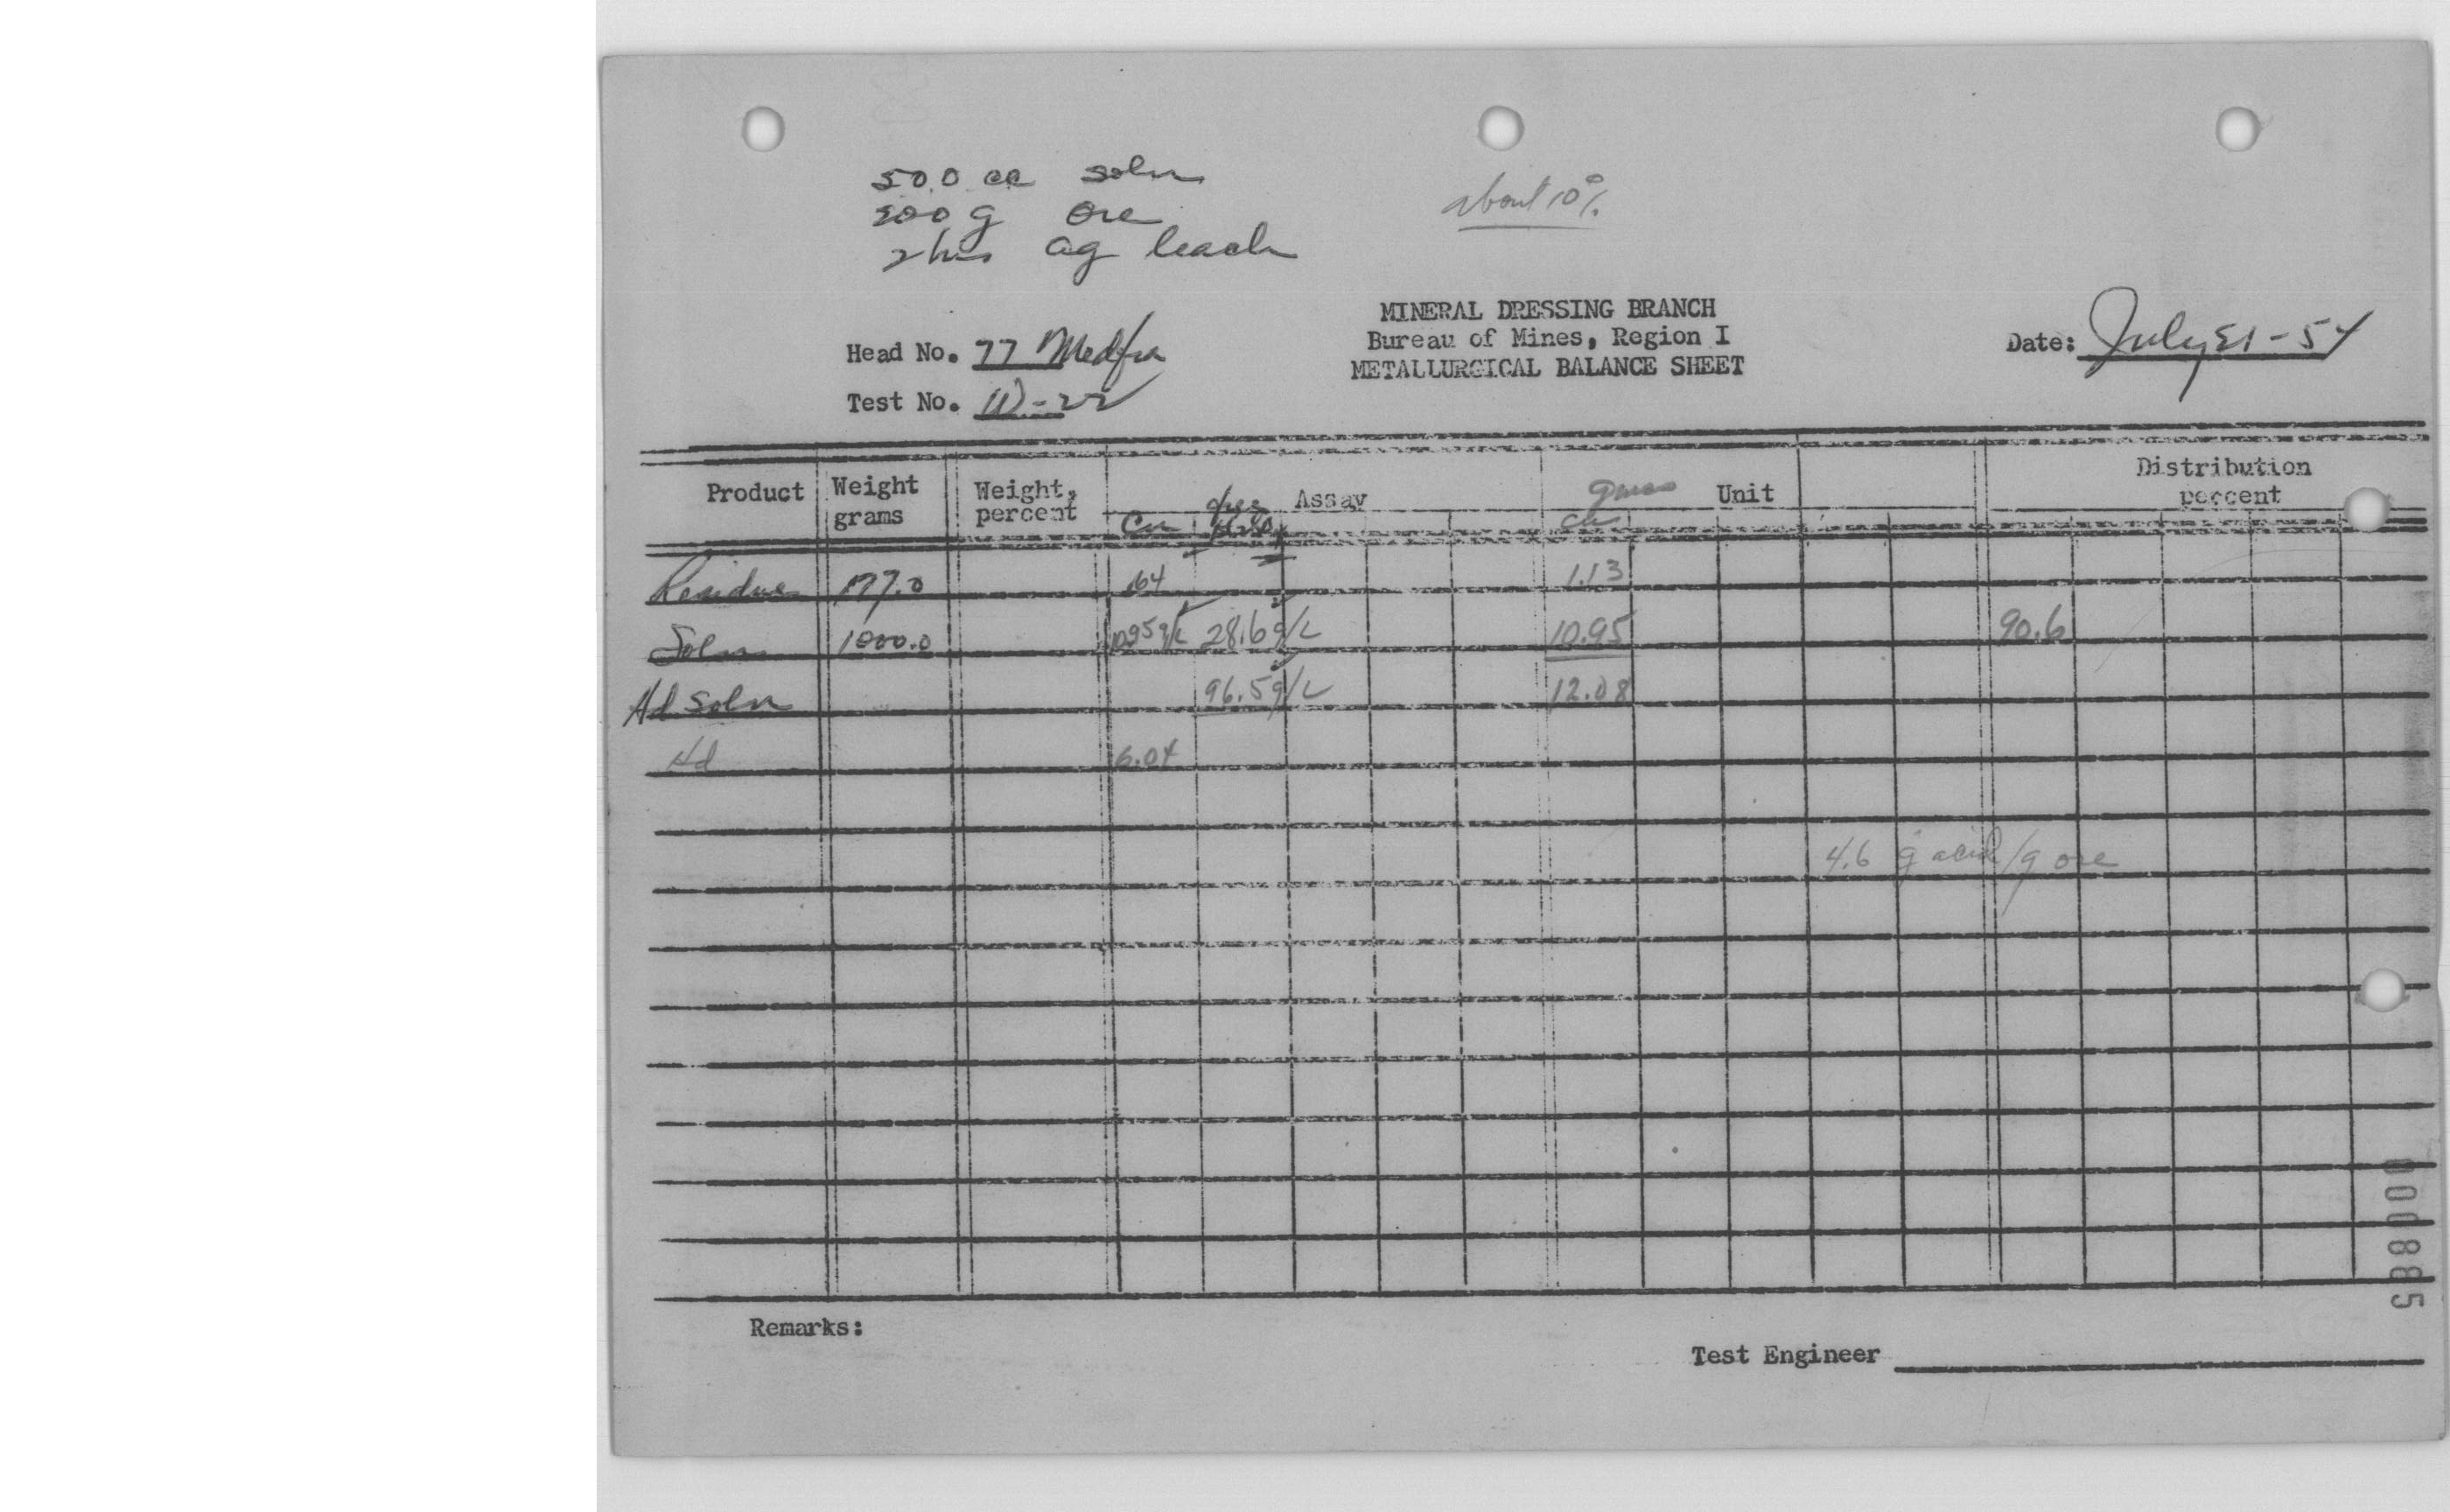 500 cc soln
200 g ore
2 hrs ag leach
about 10%
MINERAL DRESSING BRANCH
Bureau of Mines, Region I
METALLURGICAL BALANCE SHEET
Head No. 77 Medfra
Test No. W-22
Date: July 21-54
Product Weight grams Weight, percent Assay grams Unit Distribution percent
Cu free H2SO4 Cu
Residue 177.0 .64 1.13
Soln 1000.0 10.95 g/L 28.6 g/L 10.95 90.6
Hd Soln 96.5 g/L 12.08
Hd 6.04
4.6 g acid/g ore
Remarks:
Test Engineer
000885